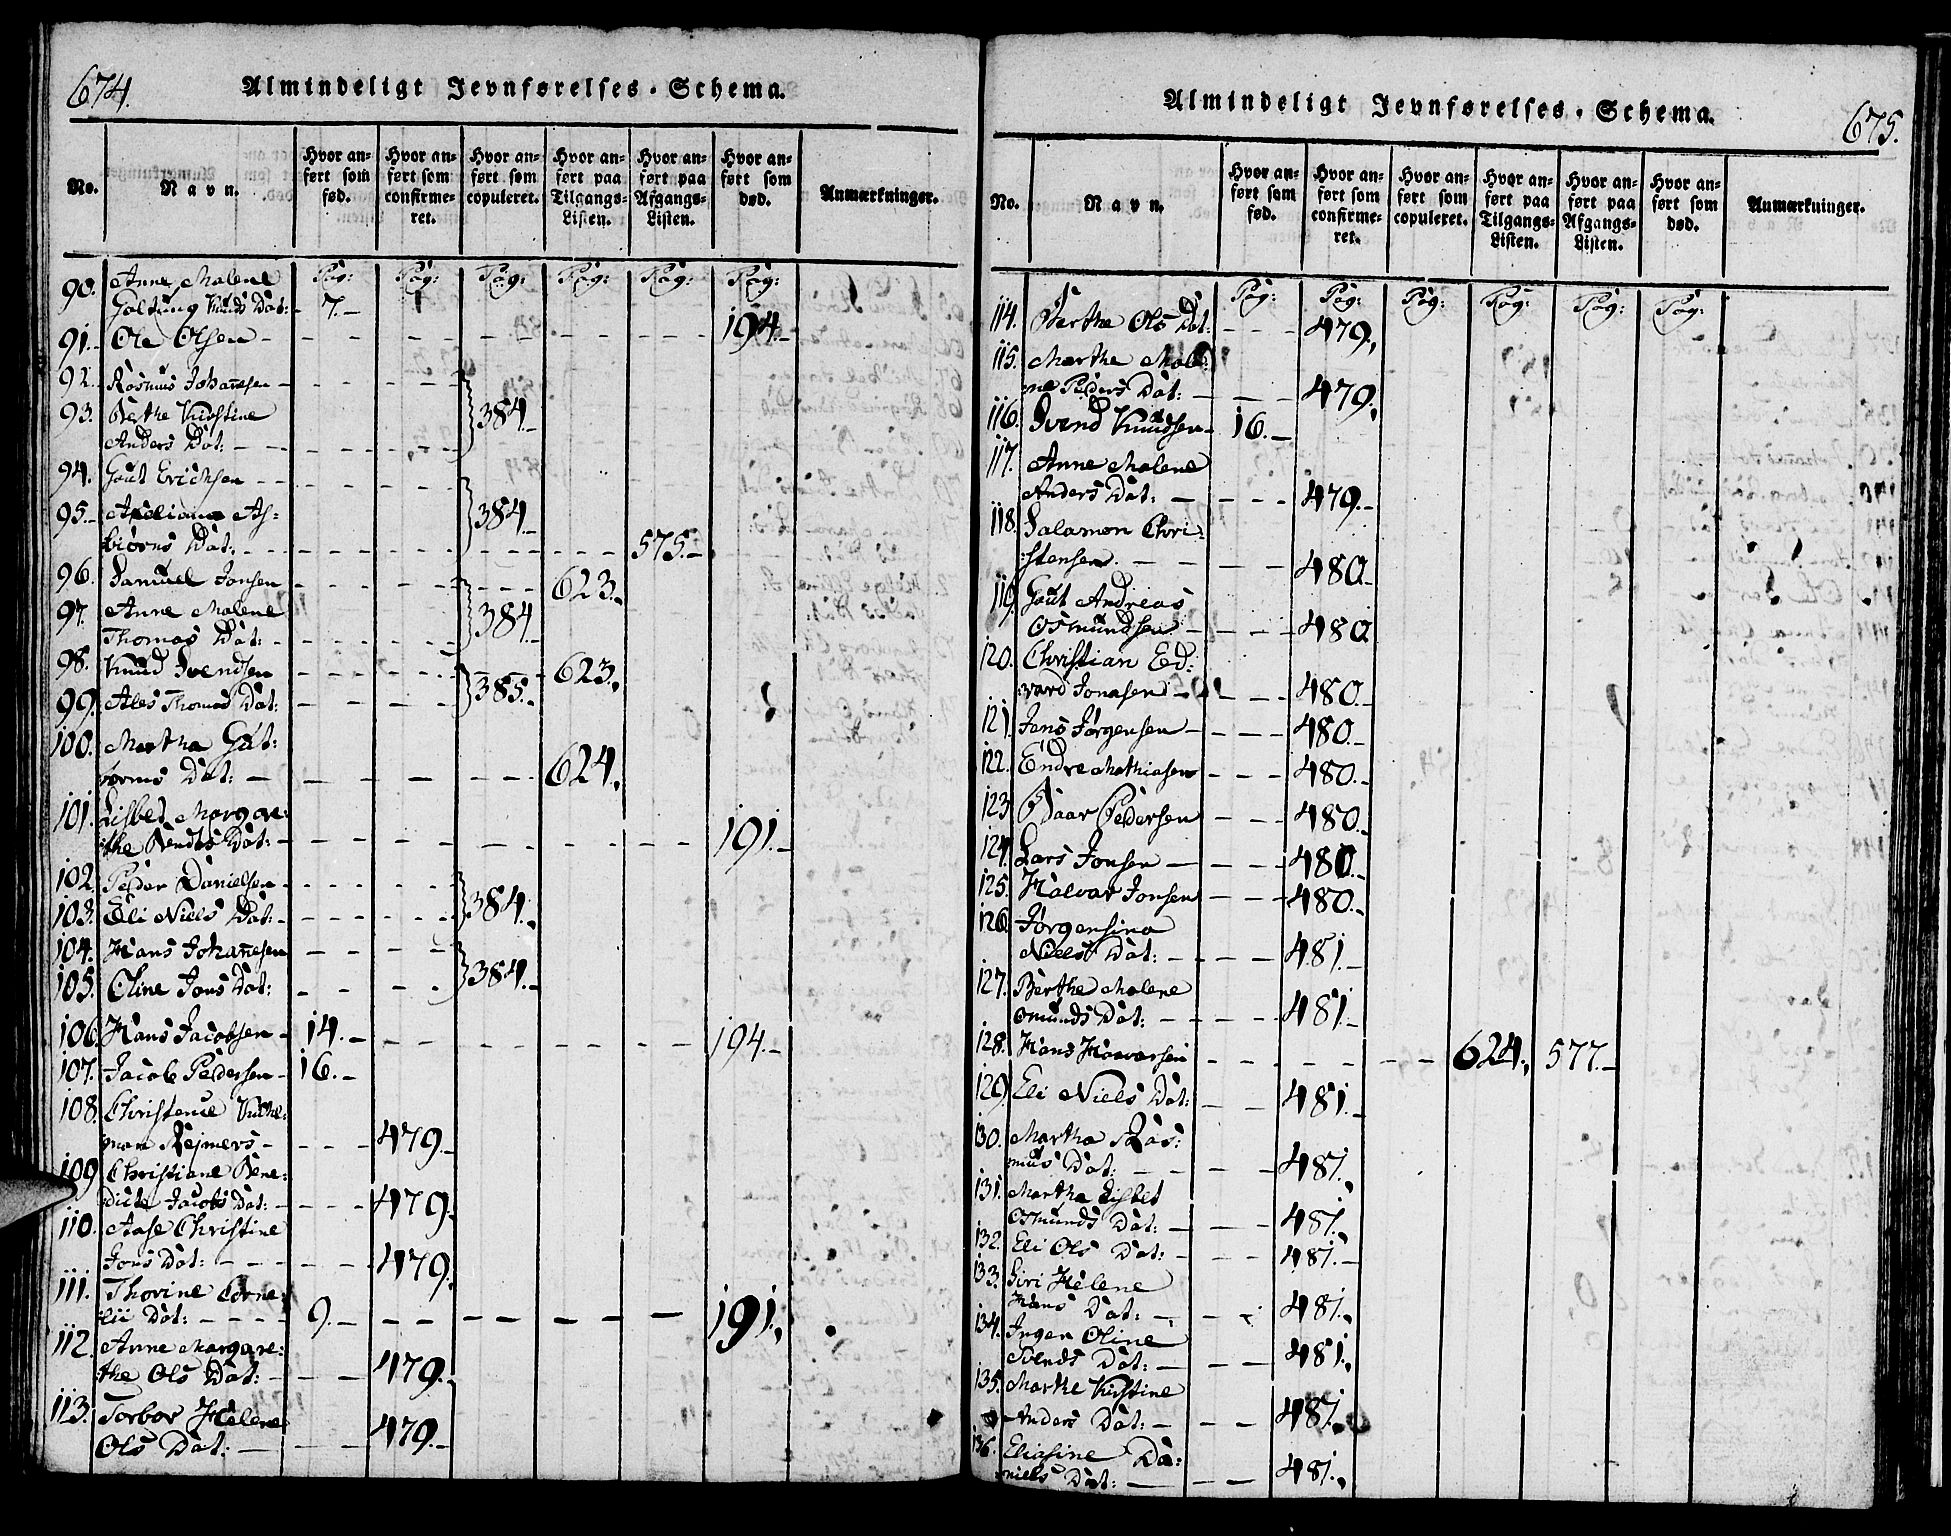 674.
Almindeligt Jevnførelses-Schema.
No.
Navn.
Hvor an-
ført som
fød.
Hvor an-
ført som
confirme-
ret.
Hvor an-
ført som
copuleret.
Hvor an-
ført paa
Tilgangs-
Listen.
Hvor an-
ført paa
Afgangs-
Listen.
Hvor an-
ført som
død.
Anmærkninger.
Pag: Pag: Pag: Pag: Pag: Pag:
90. Anne Malene
Galtung Knuds Dat: 7.
91. Ole Olsen 194.
92. Rasmus Johannesen
93. Berthe Kirstine 384.
Anders Dat:
94. Gaut Erichsen
95. Axeliane As: 384.
biörns Dat: 575.
96. Samuel Jonsen 623.
97. Anne Malene 384.
Thomas Dat:
98. Knud Svendsen 623.
99. Ales Thomas Dat: 385.
100. Martha Gut:
orms Dat: 624.
101. Lisbet Margare:
the Bendts Dat: 191.
102. Peder Danielsen
103. Eli Niels Dat: 384.
104. Hans Johannesen
105. Oline Jons Dat: 384.
106. Hans Jacobsen 14. 194.
107. Jacob Pedersen 16.
108. Christense
Rejmers 479.
109. Christiane Bene:
dicte Jacobs Dat: 479.
110. Aase Christine
Jons Dat: 479.
111. Thorine Corne:
lii Dat: 9. 191.
112. Anne Margare:
the Ols Dat: 479.
113. Torbor Helene
Ols Dat: 479.
Almindeligt Jevnførelses-Schema.
675.
No.
Navn.
Hvor an-
ført som
fød.
Hvor an-
ført som
confirme-
ret.
Hvor an-
ført som
copuleret.
Hvor an-
ført paa
Tilgangs-
Listen.
Hvor an-
ført paa
Afgangs-
Listen.
Hvor an-
ført som
død.
Anmærkninger.
Pag: Pag: Pag: Pag: Pag: Pag:
114. Berthe Ols Dat: 479.
115. Marthe Male:
ne Peders Dat: 479.
116. Svend Knudsen 16.
117. Anne Malene
Anders Dat: 479.
118. Salamon Chri:
stensen. 480.
119. Gaut Andreas
Osmundsen 480
120. Christian Ed:
vard Jonasen 480.
121. Jens Jørgensen 480.
122. Endre Mathiasen 480.
123. Baar Pedersen 480.
124. Lars Jonsen 480.
125. Halvar Jonsen 480.
126. Jørgensina
Niels Dat: 481.
127. Berthe Malene
Omunds Dat: 481.
128. Hans Havarsen 624. 577.
129. Eli Niels Dat: 481.
130. Martha Ras:
mus Dat: 481.
131. Martha Lisbet
Osmunds Dat: 481.
132. Eli Ols Dat: 481.
133. Siri Helene
Hans Dat: 481.
134. Inger Oline
Svends Dat: 481.
135. Marthe Kirstine
Anders Dat: 481.
136. Eliasine Da:
niels Dat: 481.